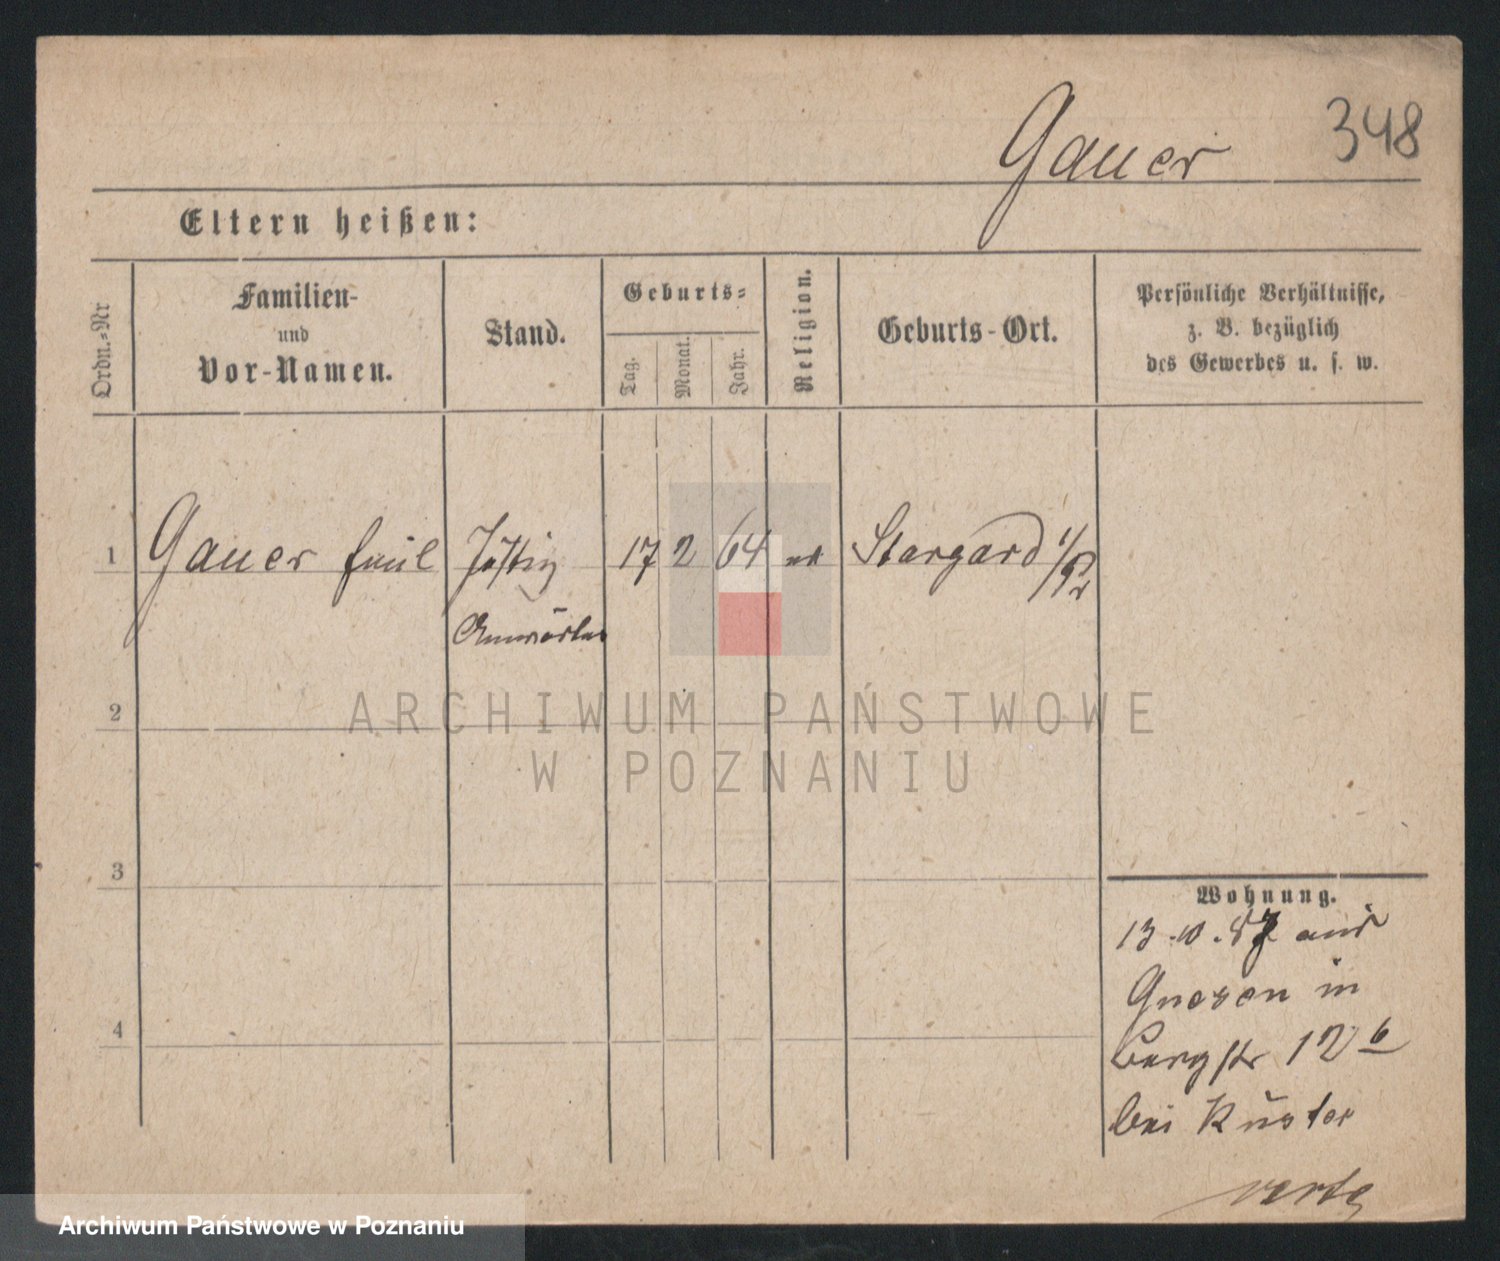 Gauer 348
Eltern heißen:
Ordn.-Nr
Familien-
und
Vor-Namen.
Stand.
Geburts-
Tag.
Monat.
Jahr.
Religion.
Geburts-Ort.
Persönliche Verhältnisse,
z. B. bezüglich
des Gewerbes u. s. w.
1 Gauer Emil Justiz 17 2 64 ev Stargard i/P
Anwärter
2
3
4
Wohnung.
13.10.87 aus
Gnesen in
Bergstr 12 b
bei Küster
verte
ARCHIWUM PAŃSTWOWE
W POZNANIU
Archiwum Państwowe w Poznaniu